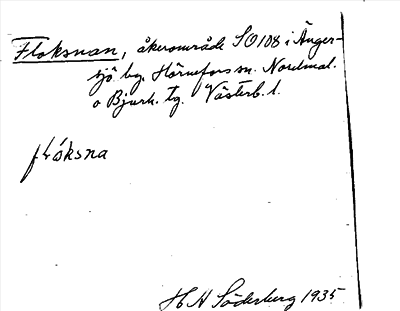 Floksnan, åkerområde SO108 i Änger-
sjö by, Hörnefors sn. Nordmal.
o Bjurh. tg. Västerb. l.
flo̍ksna
H N Söderberg 1935